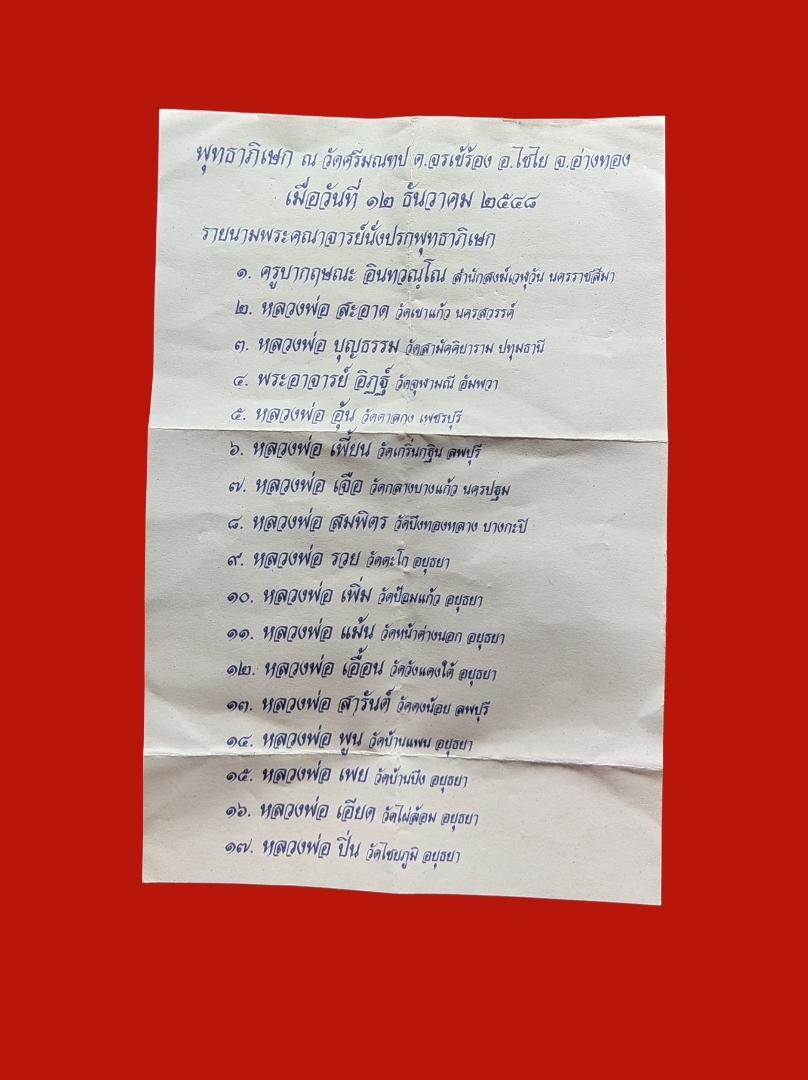 พุทธาภิเษก ณ วัดศรีมณฑป ต.จรเข้ร้อง อ.ไชโย จ.อ่างทอง
เมื่อวันที่ ๑๒ ธันวาคม ๒๕๔๘
รายนามพระคณาจารย์นั่งปรกพุทธาภิเษก
๑. ครูบากฤษณะ อินทวณฺโณ สำนักสงฆ์เวฬุวัน นครราชสีมา
๒. หลวงพ่อ สะอาด วัดเขาแก้ว นครสวรรค์
๓. หลวงพ่อ บุญธรรม วัดสามัคคิยาราม ปทุมธานี
๔. พระอาจารย์ อิฏฐ์ วัดจุฬามณี อัมพวา
๕. หลวงพ่อ อุ้น วัดตาลกง เพชรบุรี
๖. หลวงพ่อ เพี้ยน วัดเกริ่นกฐิน ลพบุรี
๗. หลวงพ่อ เจือ วัดกลางบางแก้ว นครปฐม
๘. หลวงพ่อ สมพิตร วัดบึงทองหลาง บางกะปิ
๙. หลวงพ่อ รวย วัดตะโก อยุธยา
๑๐. หลวงพ่อ เพิ่ม วัดป้อมแก้ว อยุธยา
๑๑. หลวงพ่อ แม้น วัดหน้าต่างนอก อยุธยา
๑๒. หลวงพ่อ เอื้อน วัดวังแดงใต้ อยุธยา
๑๓. หลวงพ่อ สารันต์ วัดดงน้อย ลพบุรี
๑๔. หลวงพ่อ พูน วัดบ้านแพน อยุธยา
๑๕. หลวงพ่อ เพย วัดบ้านบึง อยุธยา
๑๖. หลวงพ่อ เอียด วัดไผ่ล้อม อยุธยา
๑๗. หลวงพ่อ ปิ่น วัดไชยภูมิ อยุธยา